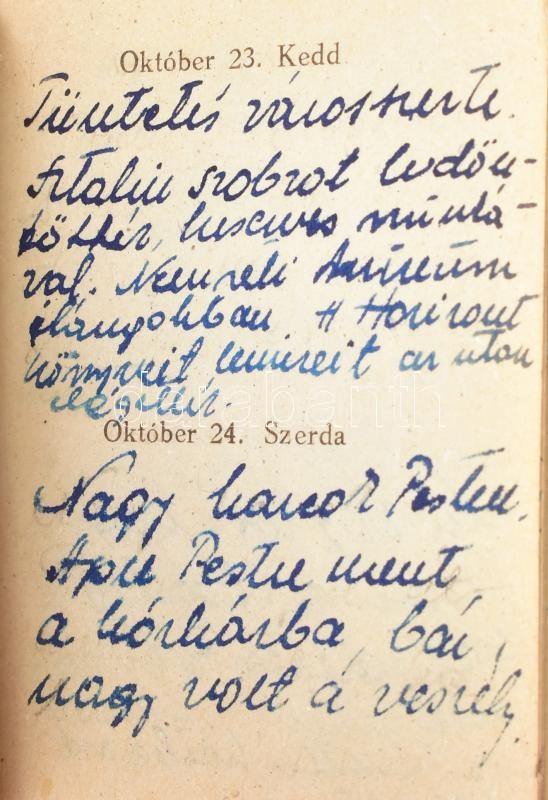 Október 23. Kedd
Tüntetés városszerte.
Sztalin szobrot ledön-
tötték, huscives munká-
val. Nemzeti Múzeum
lángokban A Horizont
könyveit lemezeit az uton
égették.
Október 24. Szerda
Nagy harcok Pesten.
Apu Pestre ment
a kórházba, bár,
nagy volt a veszély.
darabanth